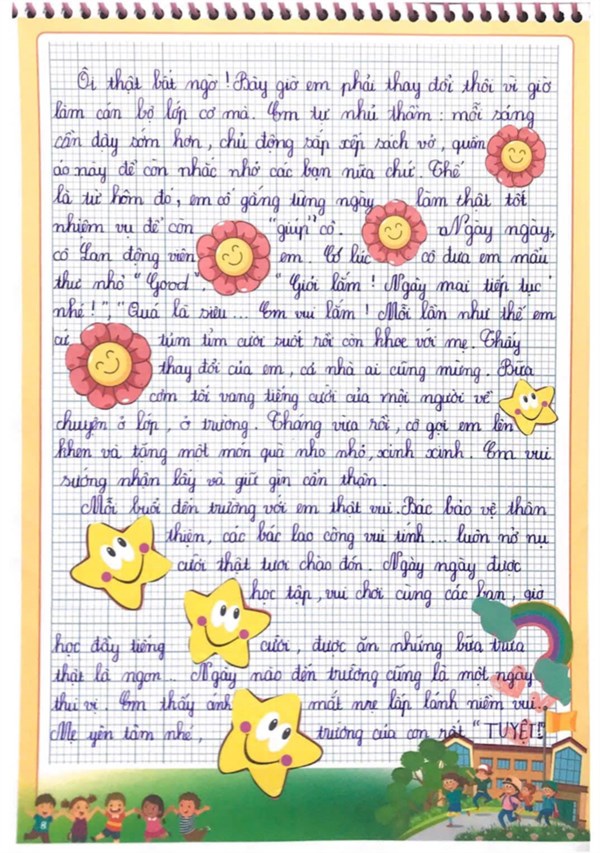 Ôi thật bất ngờ! Bây giờ em phải thay đổi thôi vì giờ
làm cán bộ lớp cơ mà. Em tự nhủ thầm: mỗi sáng
cần dậy sớm hơn, chủ động sắp xếp sách vở, quần
áo này để còn nhắc nhở các bạn nữa chứ. Thế
là từ hôm đó, em cố gắng từng ngày làm thật tốt
nhiệm vụ để còn "giúp" cô. Ngày ngày,
cô Lan động viên em. Có lúc cô đưa em mẩu
thư nhỏ "Good" "Giỏi lắm! Ngày mai tiếp tục
nhé!", "Quá là siêu... Em vui lắm! Mỗi lần như thế em
cứ tủm tỉm cười suốt rồi còn khoe với mẹ. Thấy
thay đổi của em, cả nhà ai cũng mừng. Bữa
cơm tối vang tiếng cười của mọi người về
chuyện ở lớp, ở trường. Tháng vừa rồi, cô gọi em lên
khen và tặng một món quà nho nhỏ, xinh xinh. Em vui
sướng nhận lấy và giữ gìn cẩn thận.
Mỗi buổi đến trường với em thật vui. Bác bảo vệ thân
thiện, các bác lao công vui tính... luôn nở nụ
cười thật tươi chào đón. Ngày ngày được
học tập, vui chơi cùng các bạn, giờ
học đầy tiếng cười, được ăn những bữa trưa
thật là ngon... Ngày nào đến trường cũng là một ngày
thú vị. Em thấy ánh mắt mẹ lấp lánh niềm vui.
Mẹ yên tâm nhé, trường của con rất "TUYỆT!"